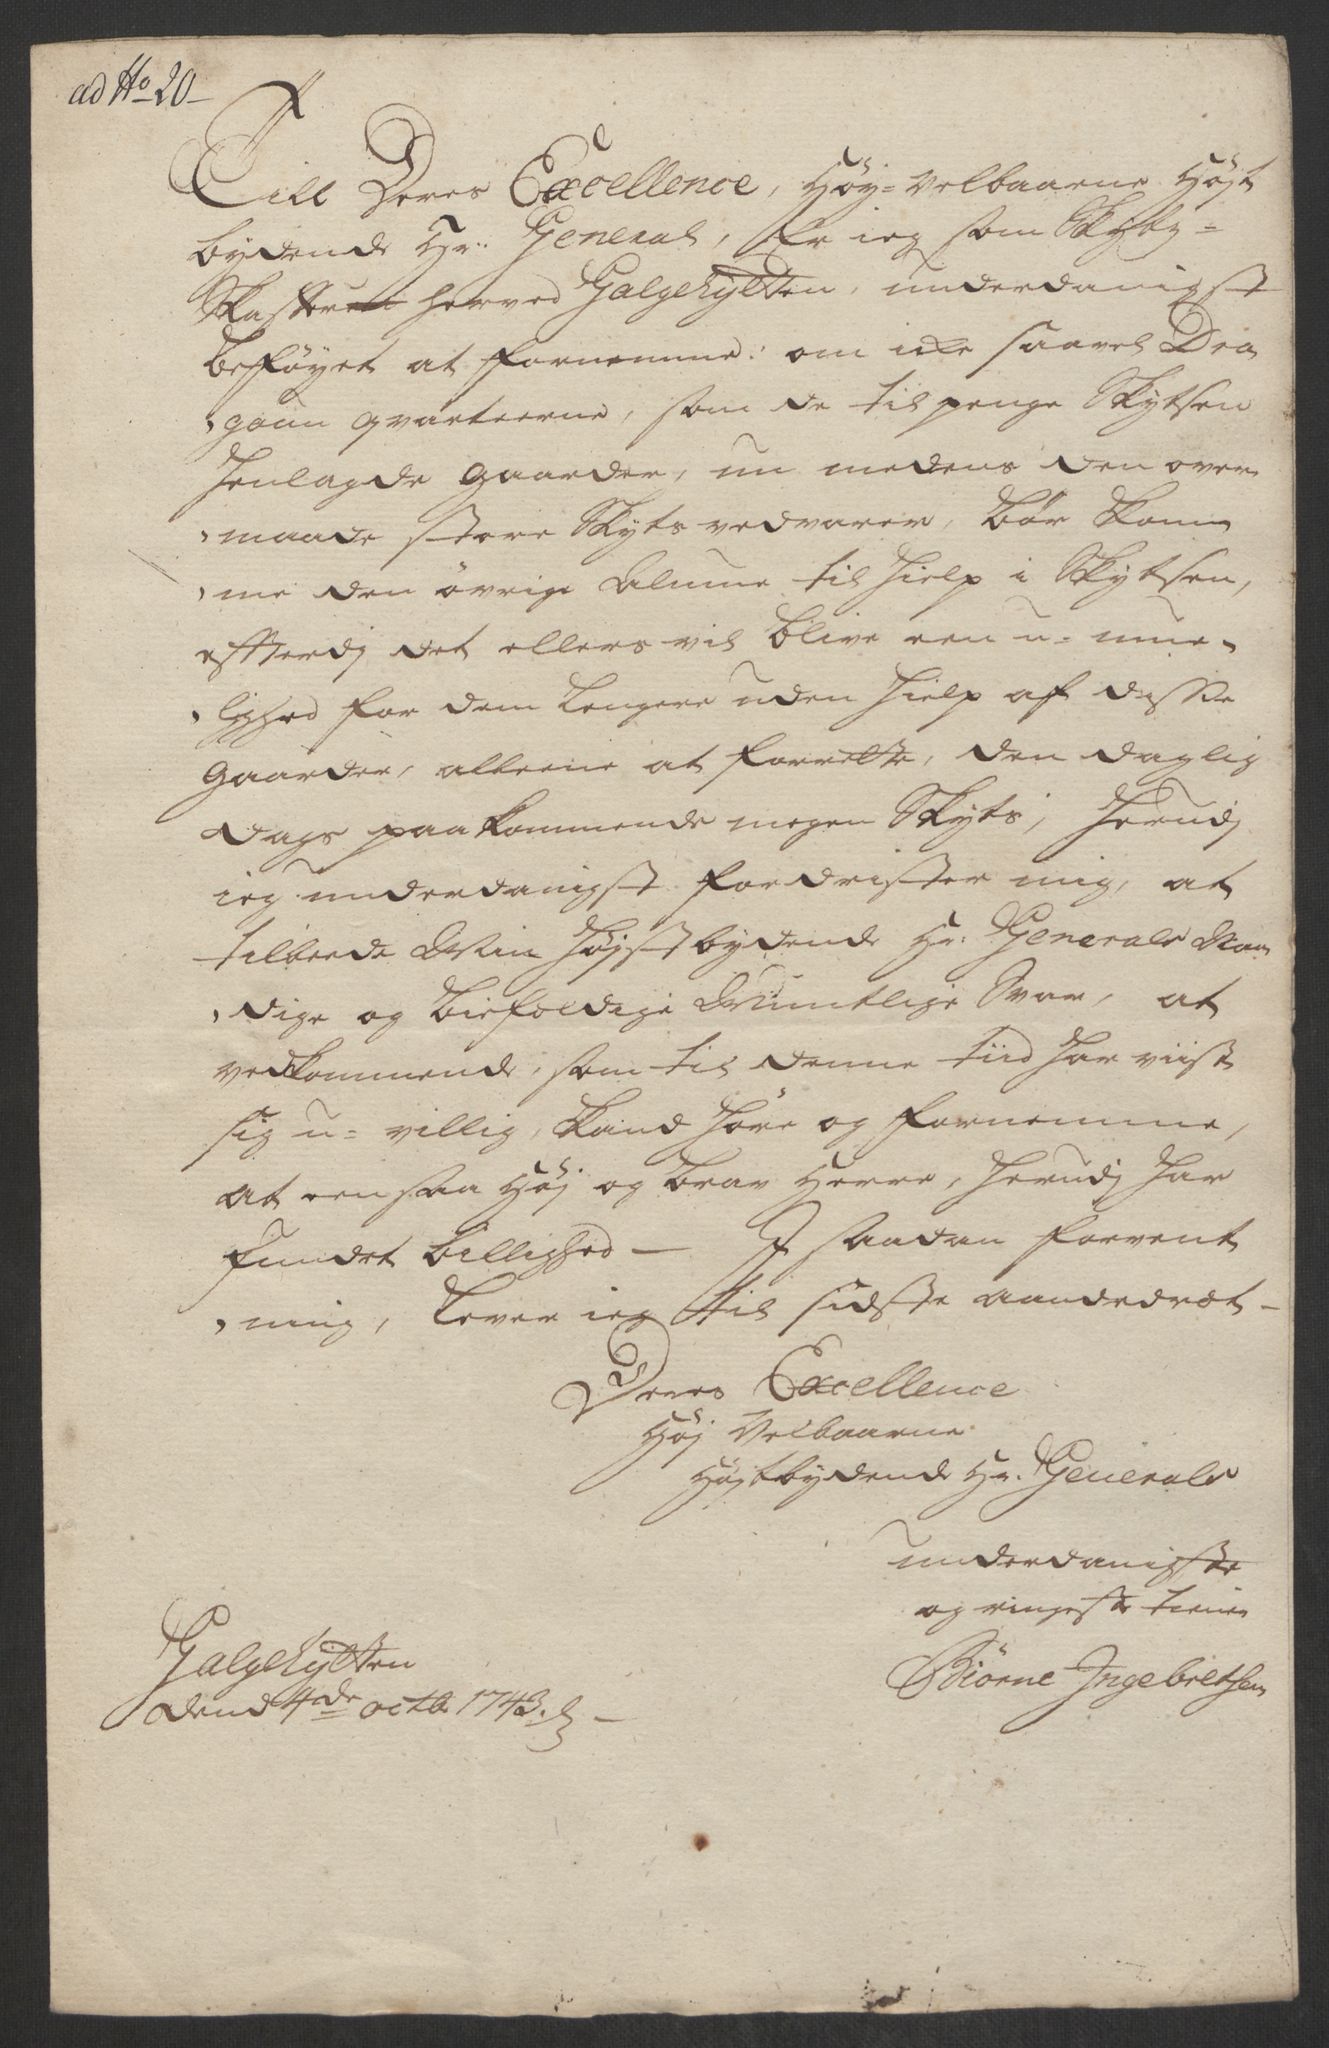 ad No 20
Till Deres Excellence, Høy-Velbaarne Højt
bydende Hr: General, Er ieg som Skyds-
Skaffere herved Galgehytten, underdanigst
beføyet at fornemme: om icke saavel Dra
goun qvarteerne, som de til penge Skytsen
henlagde gaarder, nu medens den over
maade store Skyts vedvarer, bør kom
me den øvrige Almue til hielp i Skytsen,
effterdj det ellers vil blive een u-mue-
lighed for dem lengere uden hielp af disse
gaarder, alleene at forrette, den daglig
dags paakommende megen Skyts; herudj
ieg underdanigst fordrister mig, at
tilbeede Min Højstbydende Hr: Generals Naa
dige og biefoldige Mundtlige Svar, at
vedkommende, som til denne tiid har viist
sig u-villig, kand høre og fornemme,
at een saa Høj og brav Herre, herudj har
fundet billighed — I saadan forvent
ning, lever ieg til sidste aandedræt-
Deres Excellence
Høj Velbaarne
Højtbydende Hr. Generals
underdanigste
og ringeste tiener
Biørne Ingebretsen
Galgehytten
dend 4de octb. 1743.